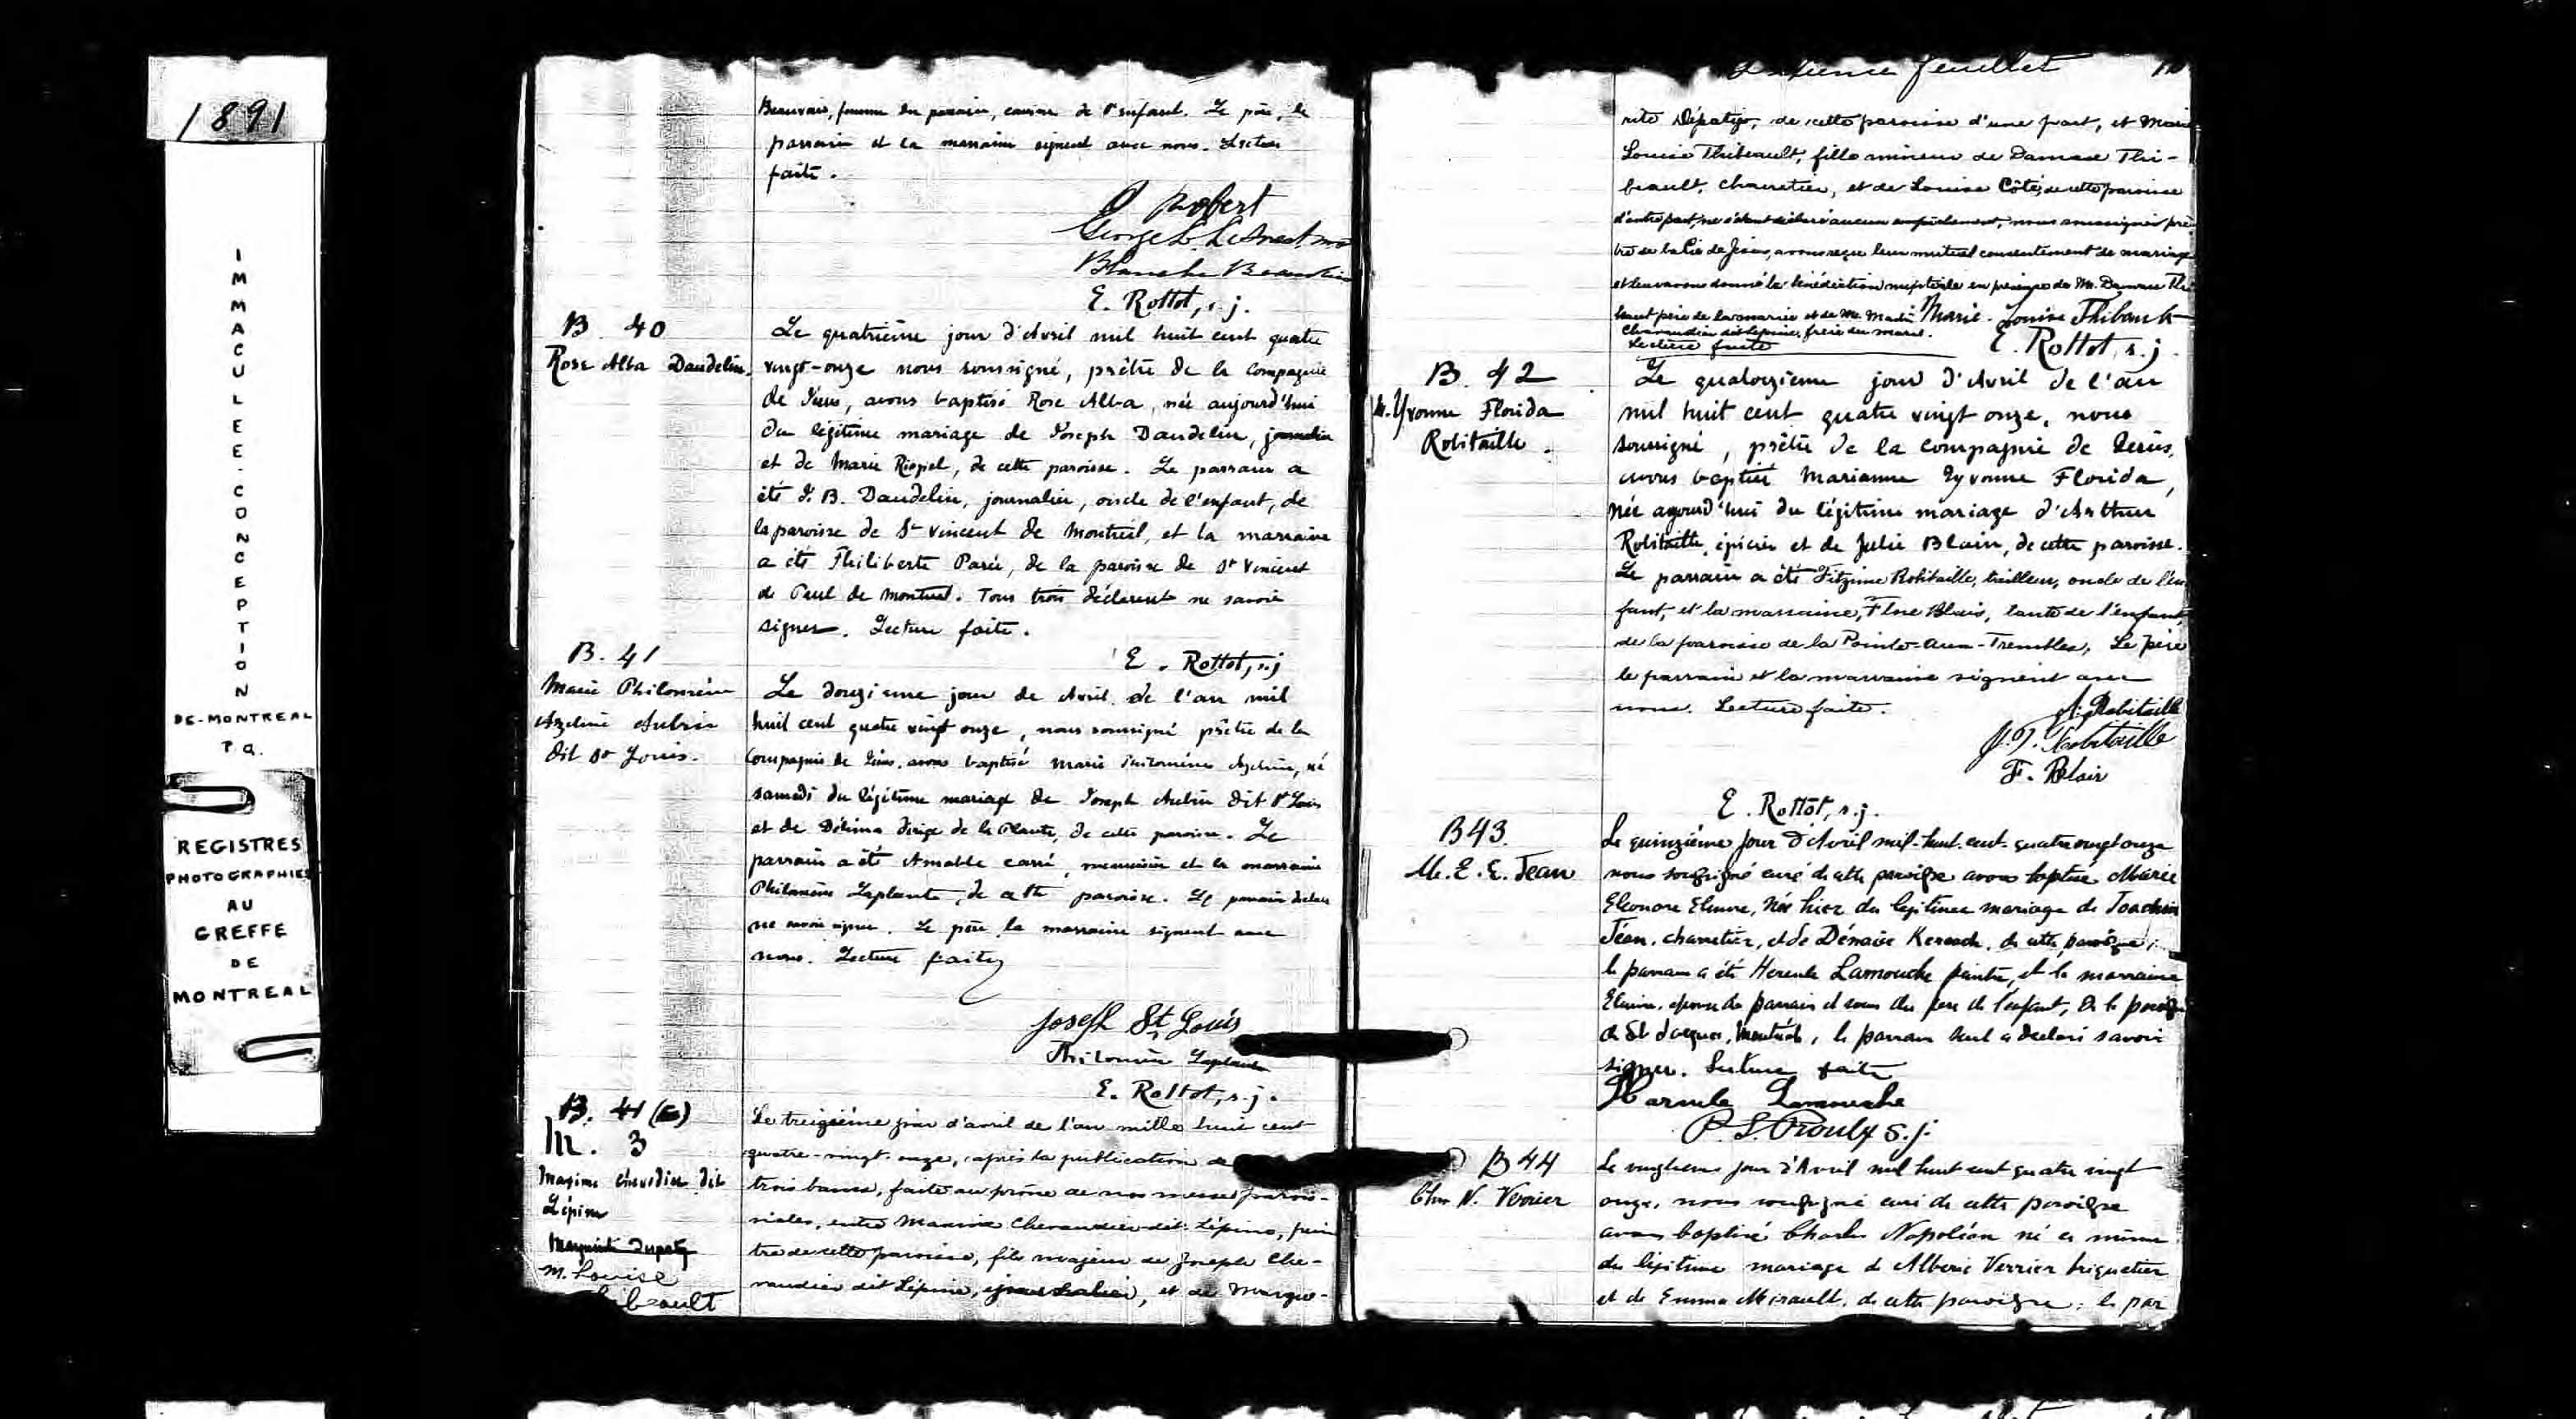 1891
IMMACULEE-CONCEPTION
DE-MONTREAL
P.Q.
REGISTRES
PHOTOGRAPHIES
AU
GREFFE
DE
MONTREAL
Beauvais, femme du parrain, cousine de l'enfant. Le père, le
parrain et la marraine signent avec nous. Lecture
faite.
Robert
George
Blanche
E. Rottot, s.j.
B. 40
Rose Alba Daudelin.
Le quatrième jour d'Avril mil huit cent quatre
vingt-onze nous soussigné, prêtre de la Compagnie
de Jésus, avons baptisé Rose Alba, née aujourd'hui
du légitime mariage de Joseph Daudelin, journalier
et de Marie Riopel, de cette paroisse. Le parrain a
été J. B. Daudelin, journalier, oncle de l'enfant, de
la paroisse de St Vincent de Montréal, et la marraine
a été Philiberte Paré, de la paroisse de St Vincent
de Paul de Montréal. Tous trois déclarent ne savoir
signer. Lecture faite.
E. Rottot, s.j.
B. 41
Marie Philomène
Azeline Aubin
dit St Louis.
Le douzième jour de Avril de l'an mil
huit cent quatre vingt onze, nous soussigné prêtre de la
Compagnie de Jésus, avons baptisé Marie Philomène Azeline, né
samedi du légitime mariage de Joseph Aubin dit St Louis
et de Délima de la Plante, de cette paroisse. Le
parrain a été Amable Carré, menuisier et la marraine
Philomène Laplante, de cette paroisse. Le parrain déclare
ne savoir signer. Le père, la marraine signent avec
nous. Lecture faite
Joseph St Louis
Philomène Laplante
E. Rottot, s.j.
B. 41
M. 3
Maxime Chevaudier dit
Lépine
Marguerite Dupaty
M. Louise
Thibeault
Le treizième jour d'avril de l'an mille huit cent
quatre-vingt-onze, après la publication de
trois bancs, faite au prône de nos messes parois-
siales, entre Maxime Chevaudier dit Lépine, pein
tre de cette paroisse, fils majeur de Joseph Che-
vaudier dit Lépine, journalier, et de Margue-
feuillet
rite Dépatie, de cette paroisse d'une part, et Marie
Louise Thibeault, fille mineure de Damase Thi-
beault, charretier, et de Louise Côté, de cette paroisse
d'autre part, ne s'étant déclaré aucun empêchement, nous soussigné prê
tre de la Cie de Jésus, avons reçu leur mutuel consentement de mariage
et leur avons donné la bénédiction nuptiale en présence de M. Damase Thi
beault père de la mariée et de M. Marie. Louise Thibault
Chevaudier dit Lépine, frère du marié.
Lecture faite
E. Rottot, s.j.
B. 42
M. Yvonne Florida
Robitaille.
Le quatorzième jour d'Avril de l'an
mil huit cent quatre vingt onze, nous
soussigné, prêtre de la compagnie de Jésus,
avons baptisé Marianne Yvonne Florida,
née aujourd'hui du légitime mariage d'Arthur
Robitaille, épicier et de Julie Blain, de cette paroisse.
Le parrain a été Robitaille, tailleur, oncle de l'en
fant, et la marraine, Blain, tante de l'enfant,
de la paroisse de la Pointe-aux-Trembles, Le père
le parrain et la marraine signent avec
nous. Lecture faite.
A. Robitaille
J. T. Robitaille
F. Blain
E. Rottot, s.j.
B 43.
M. E. E. Jean
Le quinzième jour d'Avril mil-huit-cent-quatre vingt onze
nous soussigné curé de cette paroisse avons baptisé Marie
Eleonore, Née hier du légitime mariage de Joachim
Jean, charretier, et de Dénaise, de cette paroisse,
le parrain a été Hercule Lamouche peintre, et la marraine
épouse du parrain et soeur du père de l'enfant, de la paroisse
de St Jacques, Montréal, le parrain seul a déclaré savoir
signer. Lecture faite
Hercule Lamouche
P. L. Proulx s.j.
B 44
Chs N. Verrier
Le vingtième jour d'Avril mil huit cent quatre vingt
onze, nous soussigné curé de cette paroisse
avons baptisé Charles Napoléon né ce même
du légitime mariage de Alberic Verrier briquetier
et de Emma Mirault, de cette paroisse; le par